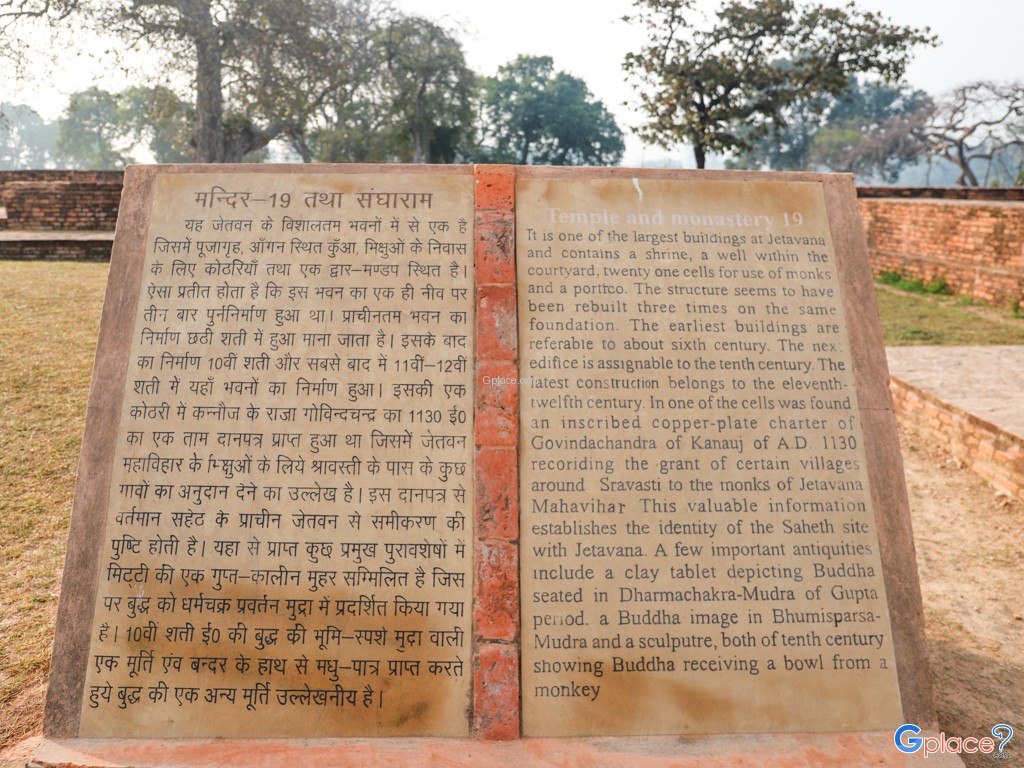 मन्दिर–19 तथा संघाराम
यह जेतवन के विशालतम भवनों में से एक है
जिसमें पूजागृह, आँगन स्थित कुँआ, भिक्षुओं के निवास
के लिए कोठरियाँ तथा एक द्वार–मण्डप स्थित है।
ऐसा प्रतीत होता है कि इस भवन का एक ही नीव पर
तीन बार पुर्ननिर्माण हुआ था। प्राचीनतम भवन का
निर्माण छठी शती में हुआ माना जाता है। इसके बाद
का निर्माण 10वीं शती और सबसे बाद में 11वीं–12वीं
शती में यहाँ भवनों का निर्माण हुआ। इसकी एक
कोठरी में कन्नौज के राजा गोविन्दचन्द्र का 1130 ई0
का एक ताम दानपत्र प्राप्त हुआ था जिसमें जेतवन
महाविहार के भिक्षुओं के लिये श्रावस्ती के पास के कुछ
गावों का अनुदान देने का उल्लेख है। इस दानपत्र से
वर्तमान सहेठ के प्राचीन जेतवन से समीकरण की
पुष्टि होती है। यहा से प्राप्त कुछ प्रमुख पुरावशेषों में
मिट्टी की एक गुप्त–कालीन मुहर सम्मिलित है जिस
पर बुद्ध को धर्मचक्र प्रवर्तन मुद्रा में प्रदर्शित किया गया
है। 10वीं शती ई0 की बुद्ध की भूमि–स्पर्श मुद्रा वाली
एक मूर्ति एंव बन्दर के हाथ से मधु–पात्र प्राप्त करते
हुये बुद्ध की एक अन्य मूर्ति उल्लेखनीय है।
Temple and monastery 19
It is one of the largest buildings at Jetavana
and contains a shrine, a well within the
courtyard, twenty one cells for use of monks
and a portico. The structure seems to have
been rebuilt three times on the same
foundation. The earliest buildings are
referable to about sixth century. The next
edifice is assignable to the tenth century. The
latest construction belongs to the eleventh-
twelfth century. In one of the cells was found
an inscribed copper-plate charter of
Govindachandra of Kanauj of A.D. 1130
recoriding the grant of certain villages
around Sravasti to the monks of Jetavana
Mahavihar This valuable information
establishes the identity of the Saheth site
with Jetavana. A few important antiquities
include a clay tablet depicting Buddha
seated in Dharmachakra-Mudra of Gupta
period. a Buddha image in Bhumisparsa-
Mudra and a sculputre, both of tenth century
showing Buddha receiving a bowl from a
monkey
Gplace.com
Gplace?.com